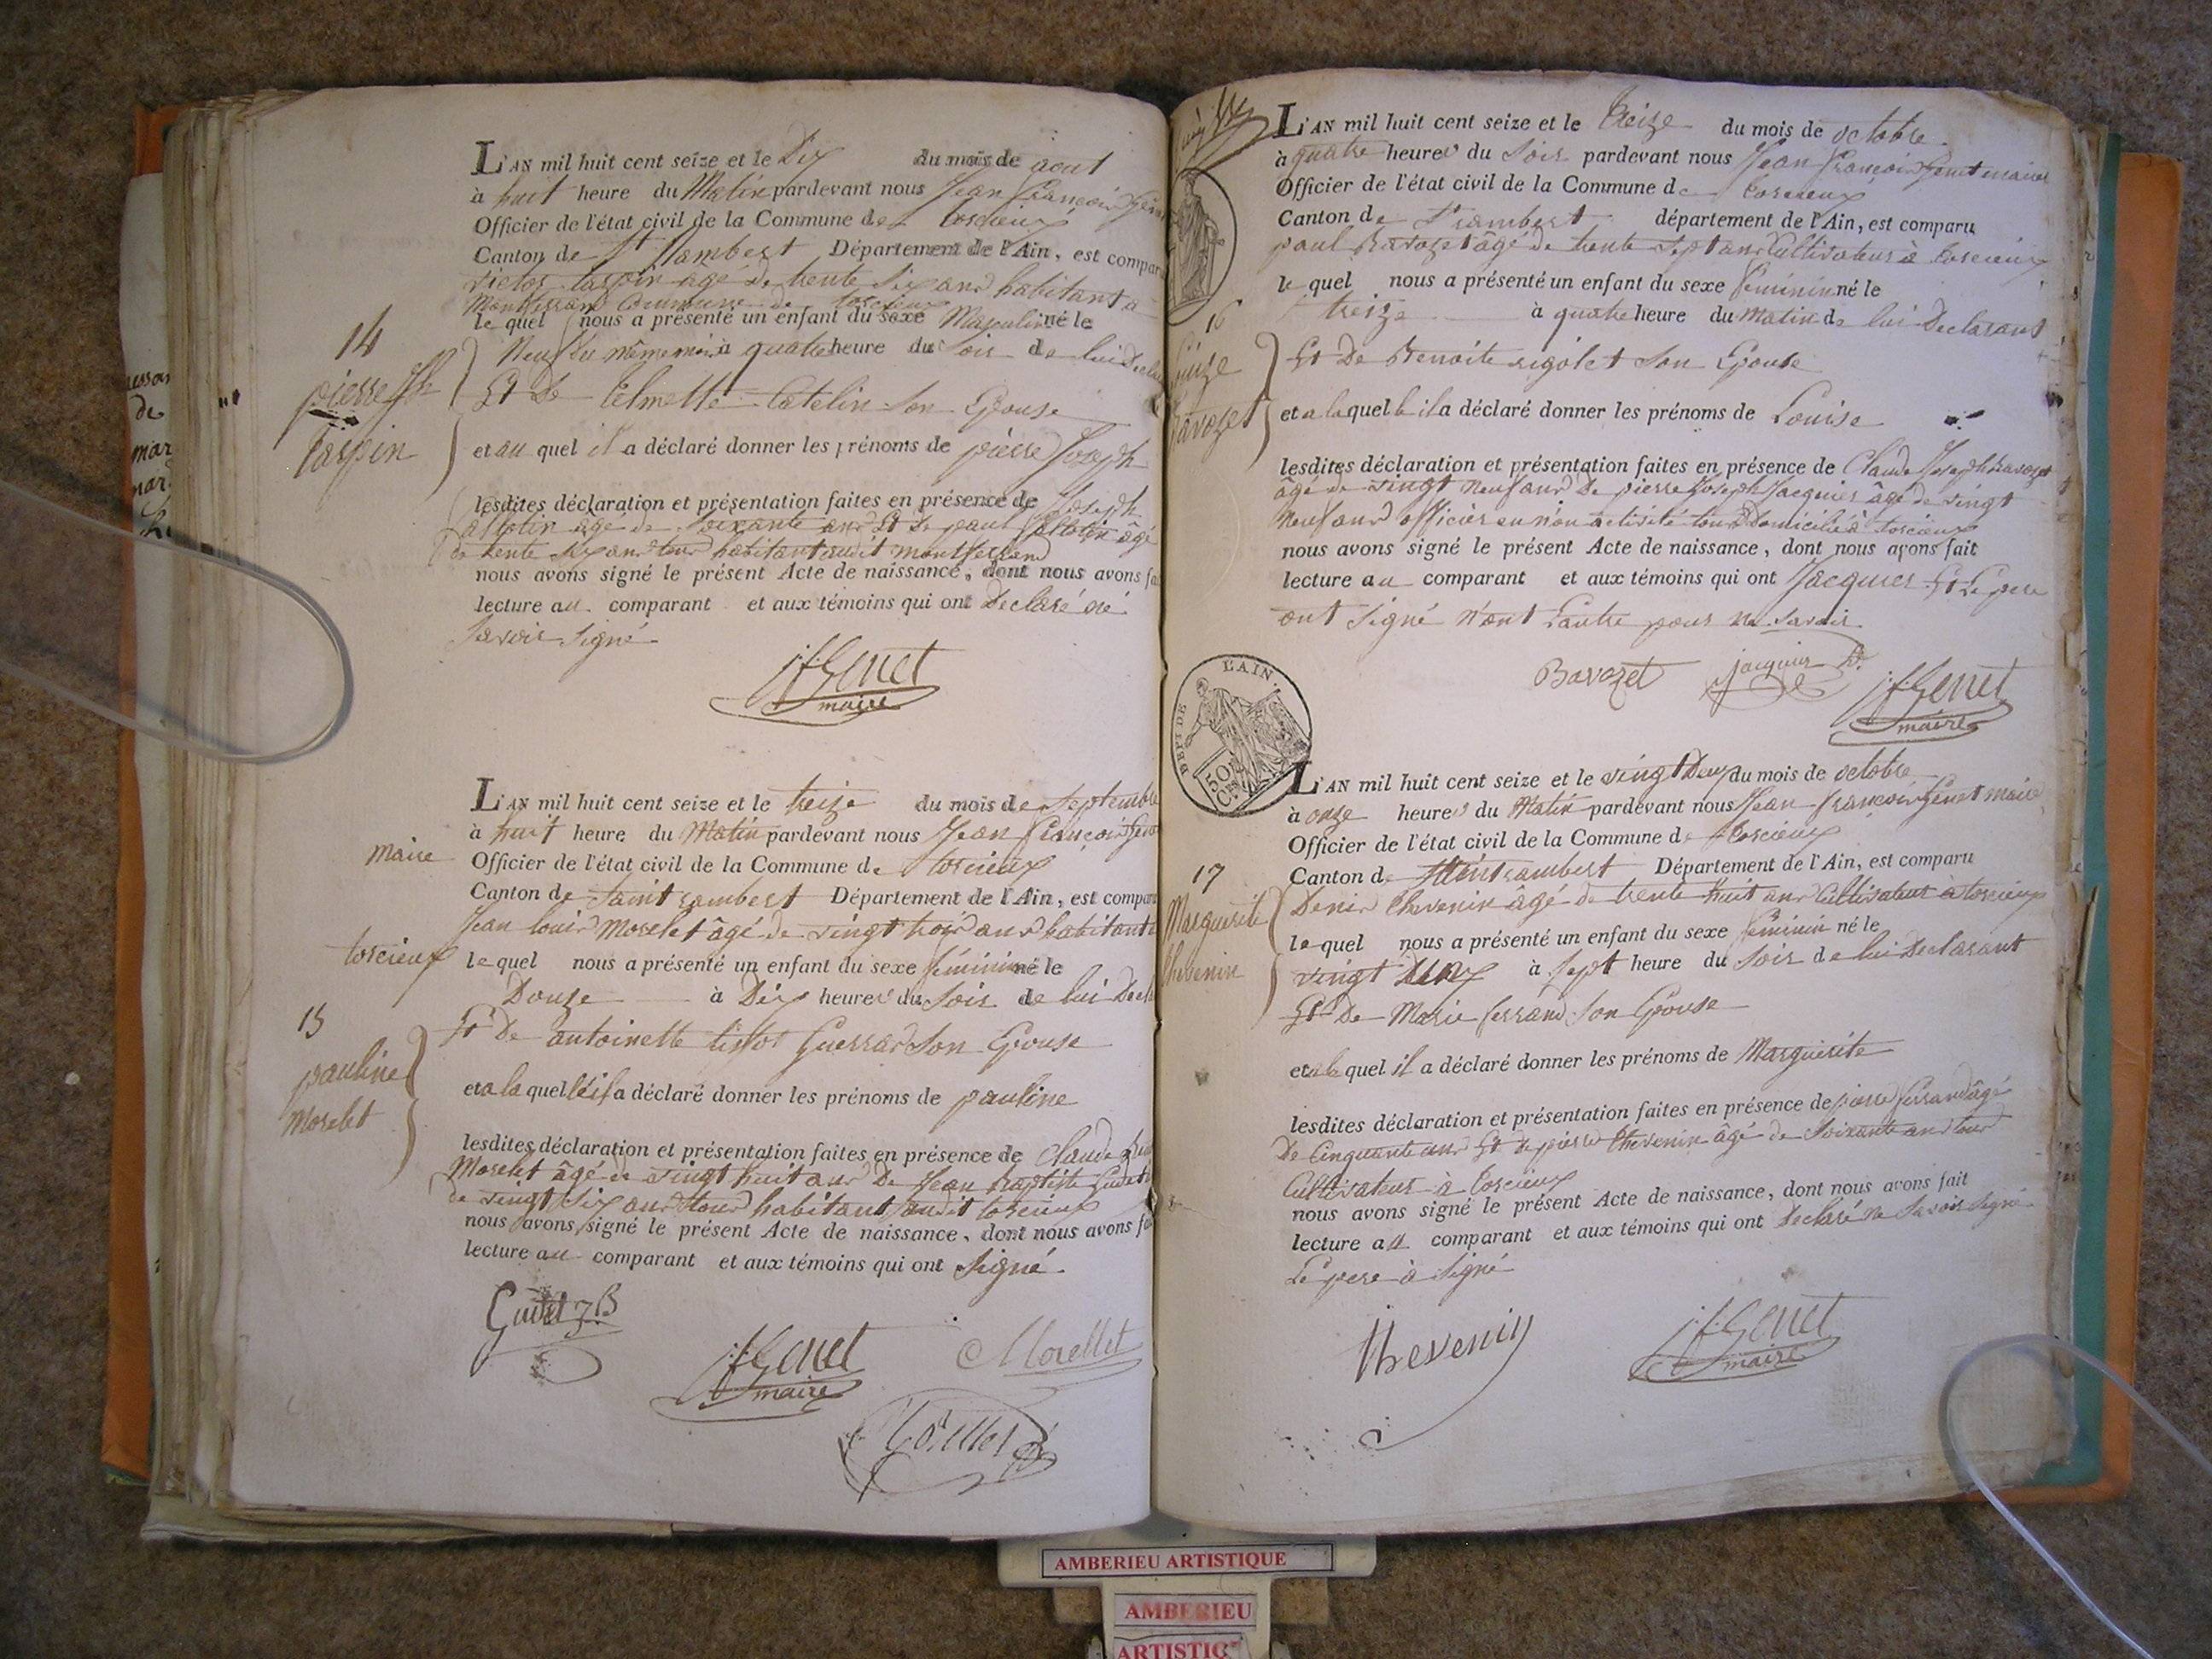 L'AN mil huit cent seize et le Dix du mois de aout
à huit heure du Matin pardevant nous Jean François Genet
Officier de l'état civil de la Commune de torcieux
Canton de St Rambert Département de l'Ain, est comparu
victor taspin agé de trente six ans habitant a
Montferrand Commune de torcieux
le quel nous a présenté un enfant du sexe Masculin né le
14
Neuf du même mois à quatre heure du Soir de lui Declarant
pierre Jph
Et De Catelin Son Epouse
taspin
et au quel il a déclaré donner les prénoms de pierre Joseph
lesdites déclaration et présentation faites en présence de Joseph
agé de Soixante ans Et De paul âgé
de trente six ans tous habitant audit montferrand
nous avons signé le présent Acte de naissance, dont nous avons fait
lecture au comparant et aux témoins qui ont Declaré né
Savoir Signé
JfGenet
maire
L'AN mil huit cent seize et le treize du mois de septembre
à huit heure du Matin pardevant nous Jean François Genet
maire
Officier de l'état civil de la Commune de torcieux
Canton de Saint rambert Département de l'Ain, est comparu
Jean louis Morelet âgé de vingt trois ans habitant
torcieux
le quel nous a présenté un enfant du sexe féminin né le
Douze à Dix heures du Soir de lui Decl
15
Et De antoinette tissot Guerrard Son Epouse
pauline
Morelet
et a la quelle il a déclaré donner les prénoms de pauline
lesdites déclaration et présentation faites en présence de Claude
Morelet âgé de vingt huit ans De Jean Baptiste Gudet
de vingt Six ans tous habitant audit torcieux
nous avons signé le présent Acte de naissance, dont nous avons fait
lecture au comparant et aux témoins qui ont Signé
JfGenet
maire
Morellet
L'AN mil huit cent seize et le treize du mois de octobre
à quatre heures du Soir pardevant nous Jean françois Genet maire
Officier de l'état civil de la Commune de torcieux
Canton de St rambert département de l'Ain, est comparu
paul Bavozet âgé de trente sept ans Cultivateur à torcieux
le quel nous a présenté un enfant du sexe féminin né le
16
treize à quatre heure du matin de lui Declarant
Louize
Et De Benoite rigolet Son Epouse
Bavozet
et a la quelle il a déclaré donner les prénoms de Louise
lesdites déclaration et présentation faites en présence de Claude Joseph Bavozet
âgé de vingt neuf ans De pierre Joseph Jacquier âgé de vingt
Neuf ans officier en non activité tous Domicilié à torcieux
nous avons signé le présent Acte de naissance, dont nous avons fait
lecture au comparant et aux témoins qui ont Jacquier Et Le pere
ont Signé n'ont L'autre pour ne Savoir
Bavozet
jacquier
JfGenet
maire
DEPT DE L'AIN.
50
Cen
L'AN mil huit cent seize et le vingt Deux du mois de octobre
à onze heures du Matin pardevant nous Jean françois Genet maire
Officier de l'état civil de la Commune de torcieux
17
Canton de Saint rambert Département de l'Ain, est comparu
Denis thevenin âgé de trente huit ans Cultivateur à torcieux
Marguerite
le quel nous a présenté un enfant du sexe féminin né le
thevenin
vingt Deux à Sept heure du Soir de lui Declarant
Et De Marie ferrand Son Epouse
et a la quel il a déclaré donner les prénoms de Marguerite
lesdites déclaration et présentation faites en présence de pierre ferrand âgé
De Cinquante ans Et de pierre thevenin âgé de Soixante ans tous
Cultivateur à torcieux
nous avons signé le présent Acte de naissance, dont nous avons fait
lecture au comparant et aux témoins qui ont Declaré ne Savoir Signé
Le pere à Signé
thevenin
JfGenet
maire
AMBERIEU ARTISTIQUE
AMBERIEU